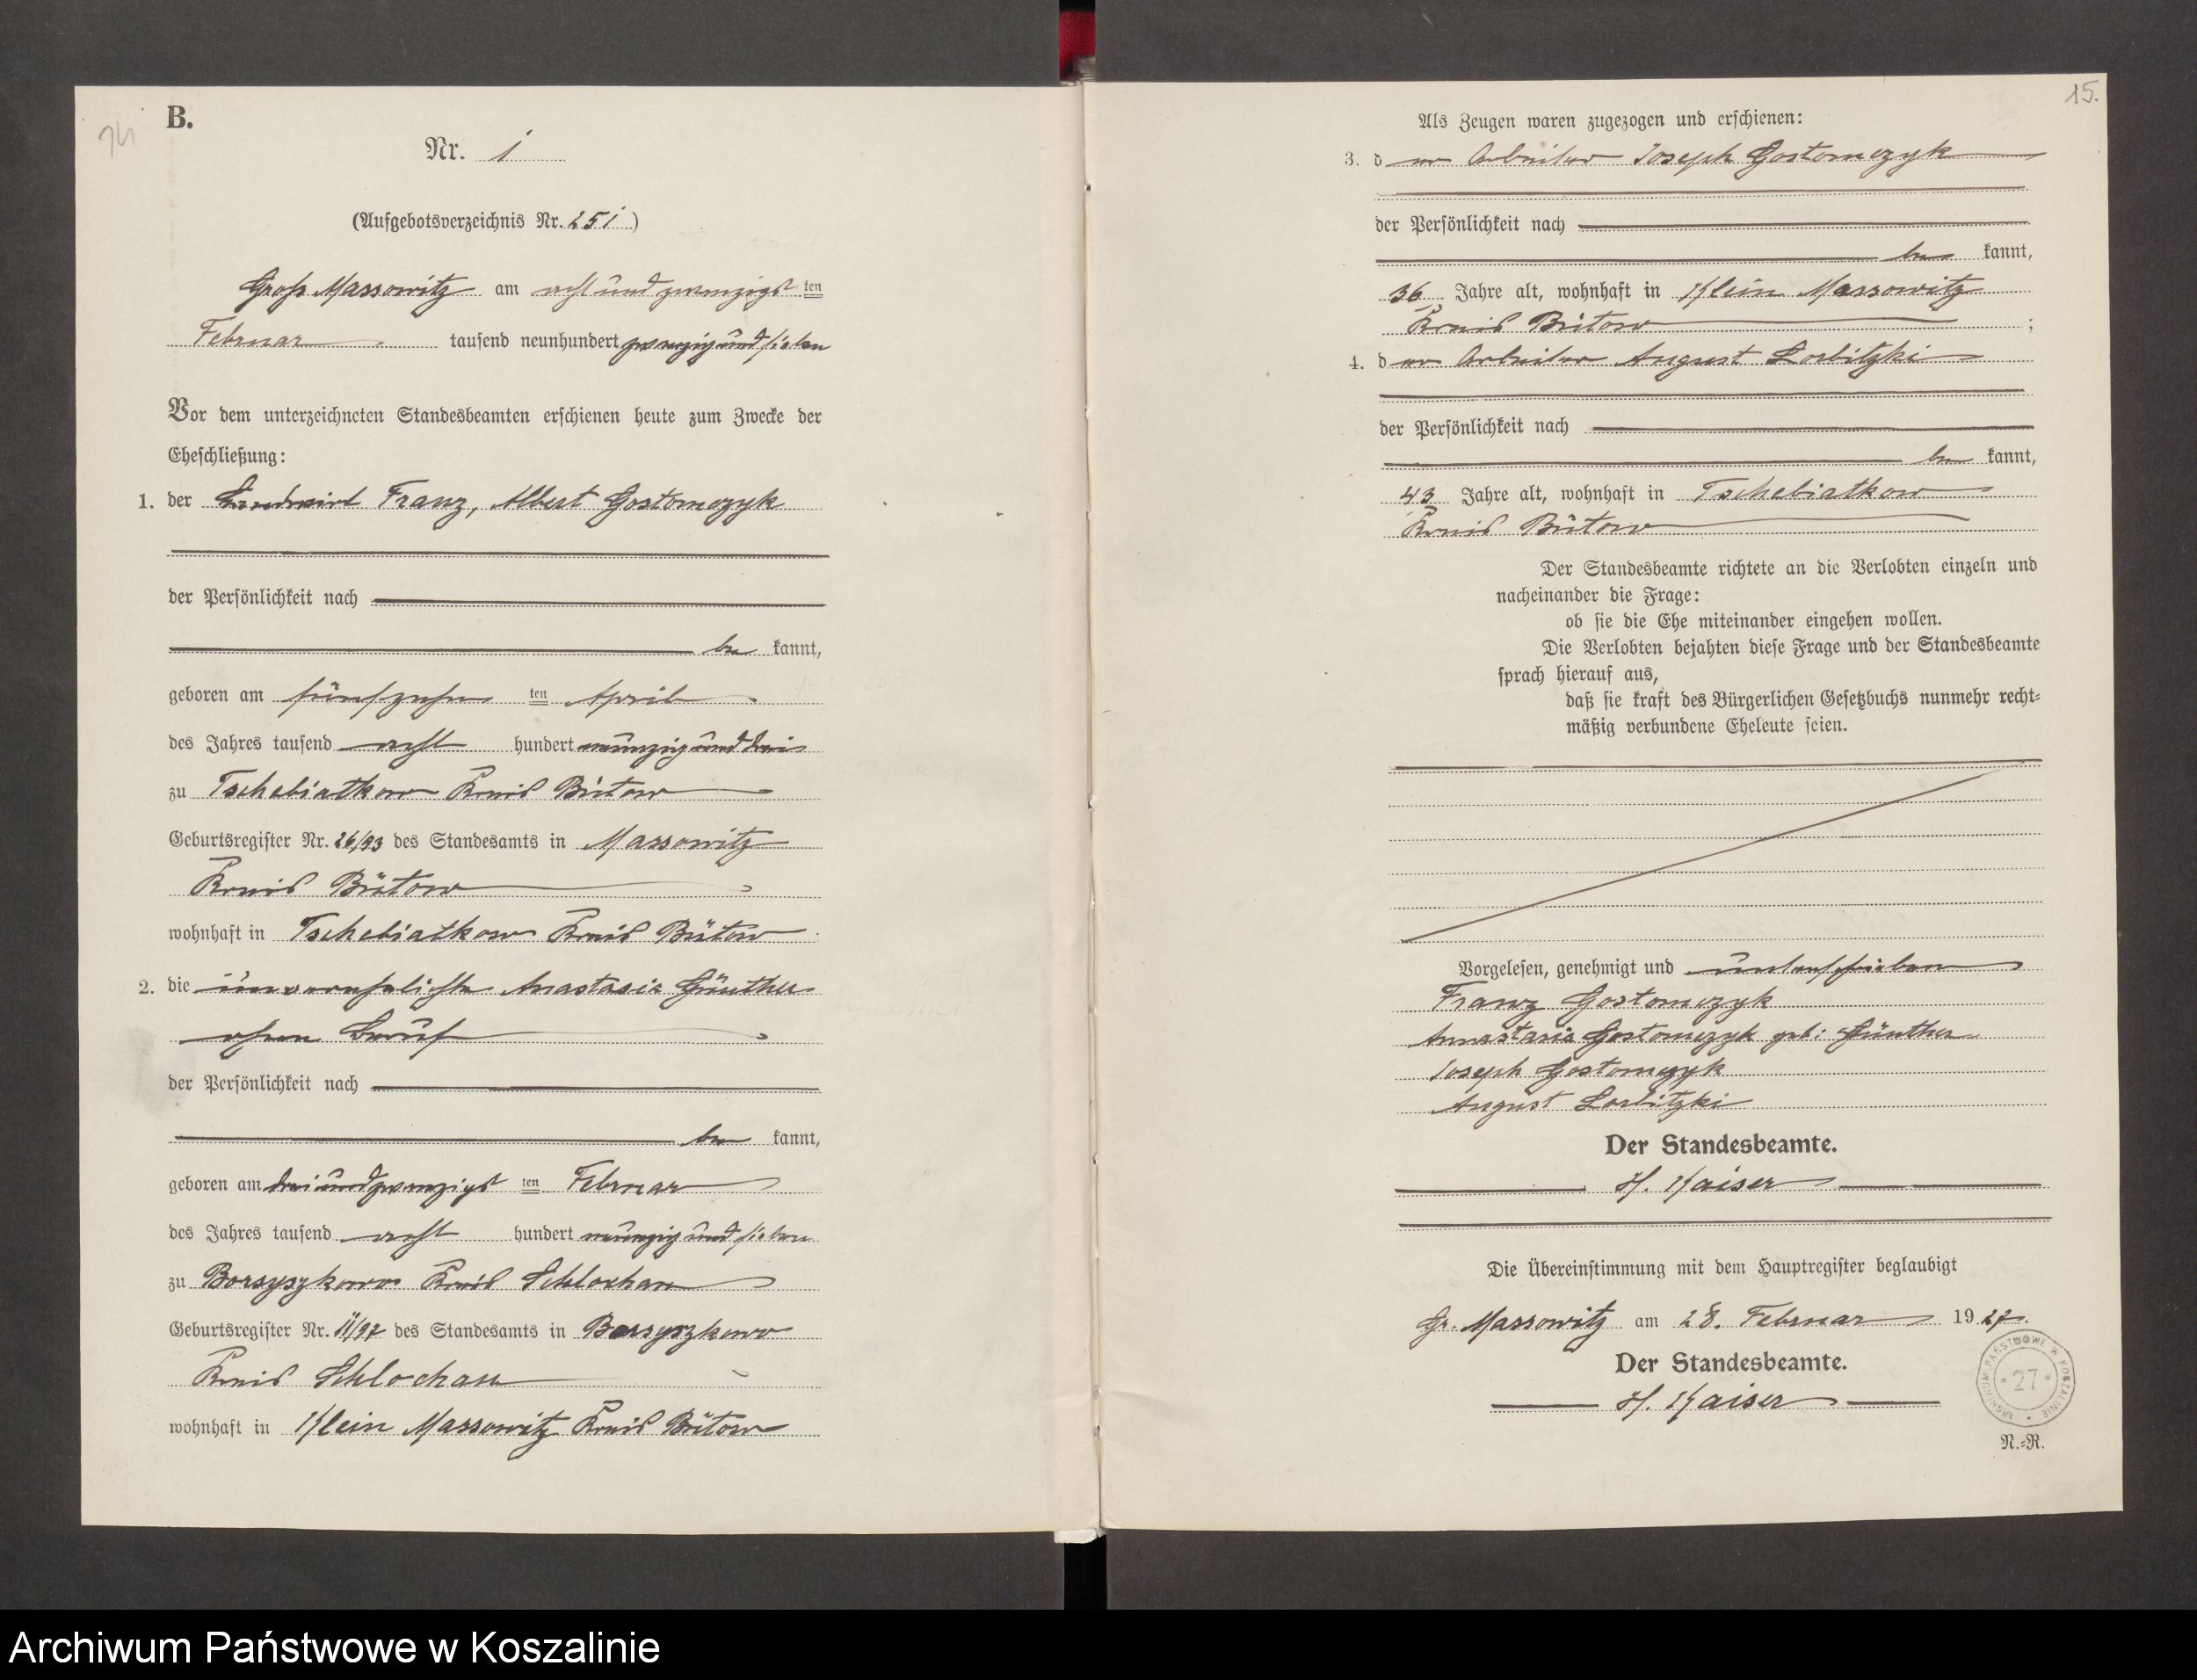 B.
14
Nr. 1
(Aufgebotsverzeichnis Nr. 251)
Groß Massowitz am acht und zwanzigst ten
Februar tausend neunhundert zwanzig und sieben
Vor dem unterzeichneten Standesbeamten erschienen heute zum Zwecke der
Eheschließung:
1. der Landwirt Franz, Albert Gostomczyk
der Persönlichkeit nach
be kannt,
geboren am fünfzehn ten April
des Jahres tausend acht hundert neunzig und drei
zu Tschebiatkow Kreis Bütow
Geburtsregister Nr. 26/93 des Standesamts in Massowitz
Kreis Bütow
wohnhaft in Tschebiatkow Kreis Bütow
2. die unverehelichte Anastasia Günther
ohne Beruf
der Persönlichkeit nach
be kannt,
geboren am drei und zwanzigst ten Februar
des Jahres tausend acht hundert neunzig und sieben
zu Borsyszkowo Kreis Schlochau
Geburtsregister Nr. 11/97 des Standesamts in Borsyszkowo
Kreis Schlochau
wohnhaft in Klein Massowitz Kreis Bütow
15.
Als Zeugen waren zugezogen und erschienen:
3. d er Arbeiter Joseph Gostomczyk
der Persönlichkeit nach
be kannt,
36 Jahre alt, wohnhaft in Klein Massowitz
Kreis Bütow ;
4. d er Arbeiter August Lorbitzki
der Persönlichkeit nach
be kannt,
43 Jahre alt, wohnhaft in Tschebiatkow
Kreis Bütow
Der Standesbeamte richtete an die Verlobten einzeln und
nacheinander die Frage:
ob sie die Ehe miteinander eingehen wollen.
Die Verlobten bejahten diese Frage und der Standesbeamte
sprach hierauf aus,
daß sie kraft des Bürgerlichen Gesetzbuchs nunmehr recht-
mäßig verbundene Eheleute seien.
Vorgelesen, genehmigt und unterschrieben
Franz Gostomczyk
Annastasia Gostomczyk geb: Günther
Joseph Gostomczyk
August Lorbitzki
Der Standesbeamte.
H. Kaiser
Die Übereinstimmung mit dem Hauptregister beglaubigt
Gr. Massowitz am 28. Februar 19 27.
Der Standesbeamte.
H. Kaiser
ARCHIWUM PAŃSTWOWE W KOSZALINIE
* 27 *
N.-R.
Archiwum Państwowe w Koszalinie